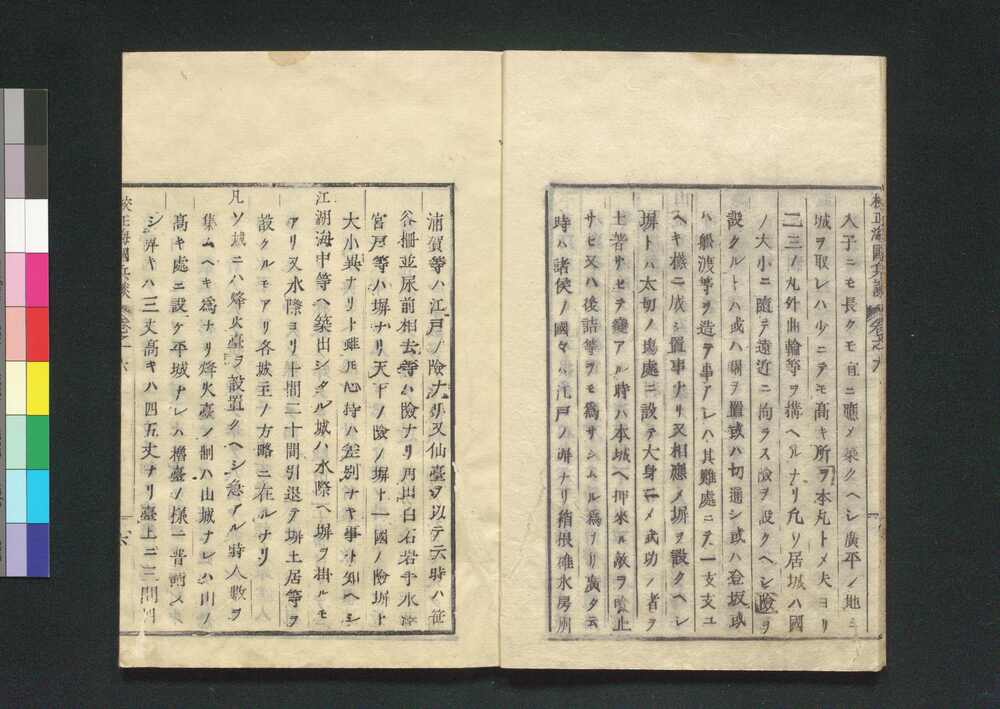 入子ニモ長クモ宜ニ應メ築クヘシ廣平ノ地ニ
城ヲ取レハ少ニテモ高キ所ヲ本丸トメ夫ヨリ
二三ノ丸外曲輪等ヲ搆ヘルナリ凡ソ居城ハ國
ノ大小ニ隨テ遠近ニ拘ラス險ヲ設クヘシ險ヲ
設クルトハ或ハ關ヲ置或ハ切通シ或ハ登坂或
ハ船渡等ヲ造テ事アレハ其難處ニテ一支支ユ
ヘキ樣ニ成シ置事ナリ又相應ノ塀ヲ設クヘシ
塀トハ太切ノ塲處ニ設テ大身ニメ武功ノ者ヲ
土着サセテ變アル時ハ本城ヘ押來ル敵ヲ喰止
サセ又ハ後詰等ヲモ爲サシムル爲ナリ廣ク云
時ハ諸侯ノ國々ハ江戸ノ塀ナリ箱根碓氷房州
浦賀等ハ江戸ノ險ナリ又仙臺ヲ以テ云時ハ笹
谷柵並尿前相去等ハ險ナリ角田白石岩手水澤
宮戸等ハ塀ナリ天下ノ險ノ塀ト一國ノ險塀ト
大小異ナリト雖モ心持ハ差別ナキ事ト知ヘシ
江湖海中等ヘ築出シタル城ハ水際ヘ塀ヲ掛ルモ
アリ又水際ヨリ十間二十間引退テ塀土居等ヲ
設クルモアリ各城主ノ方略ニ在ルナリ
凡ソ城ニハ烽火臺ヲ設置クヘシ急アル時人數ヲ
集ムヘキ爲ナリ烽火臺ノ制ハ山城ナレハ山ノ
高キ處ニ設ケ平城ナレハ櫓臺ノ樣ニ普請スヘ
シ卑キハ三丈高キハ四五丈ナリ臺上ニ三間四
校正海國兵談 卷之